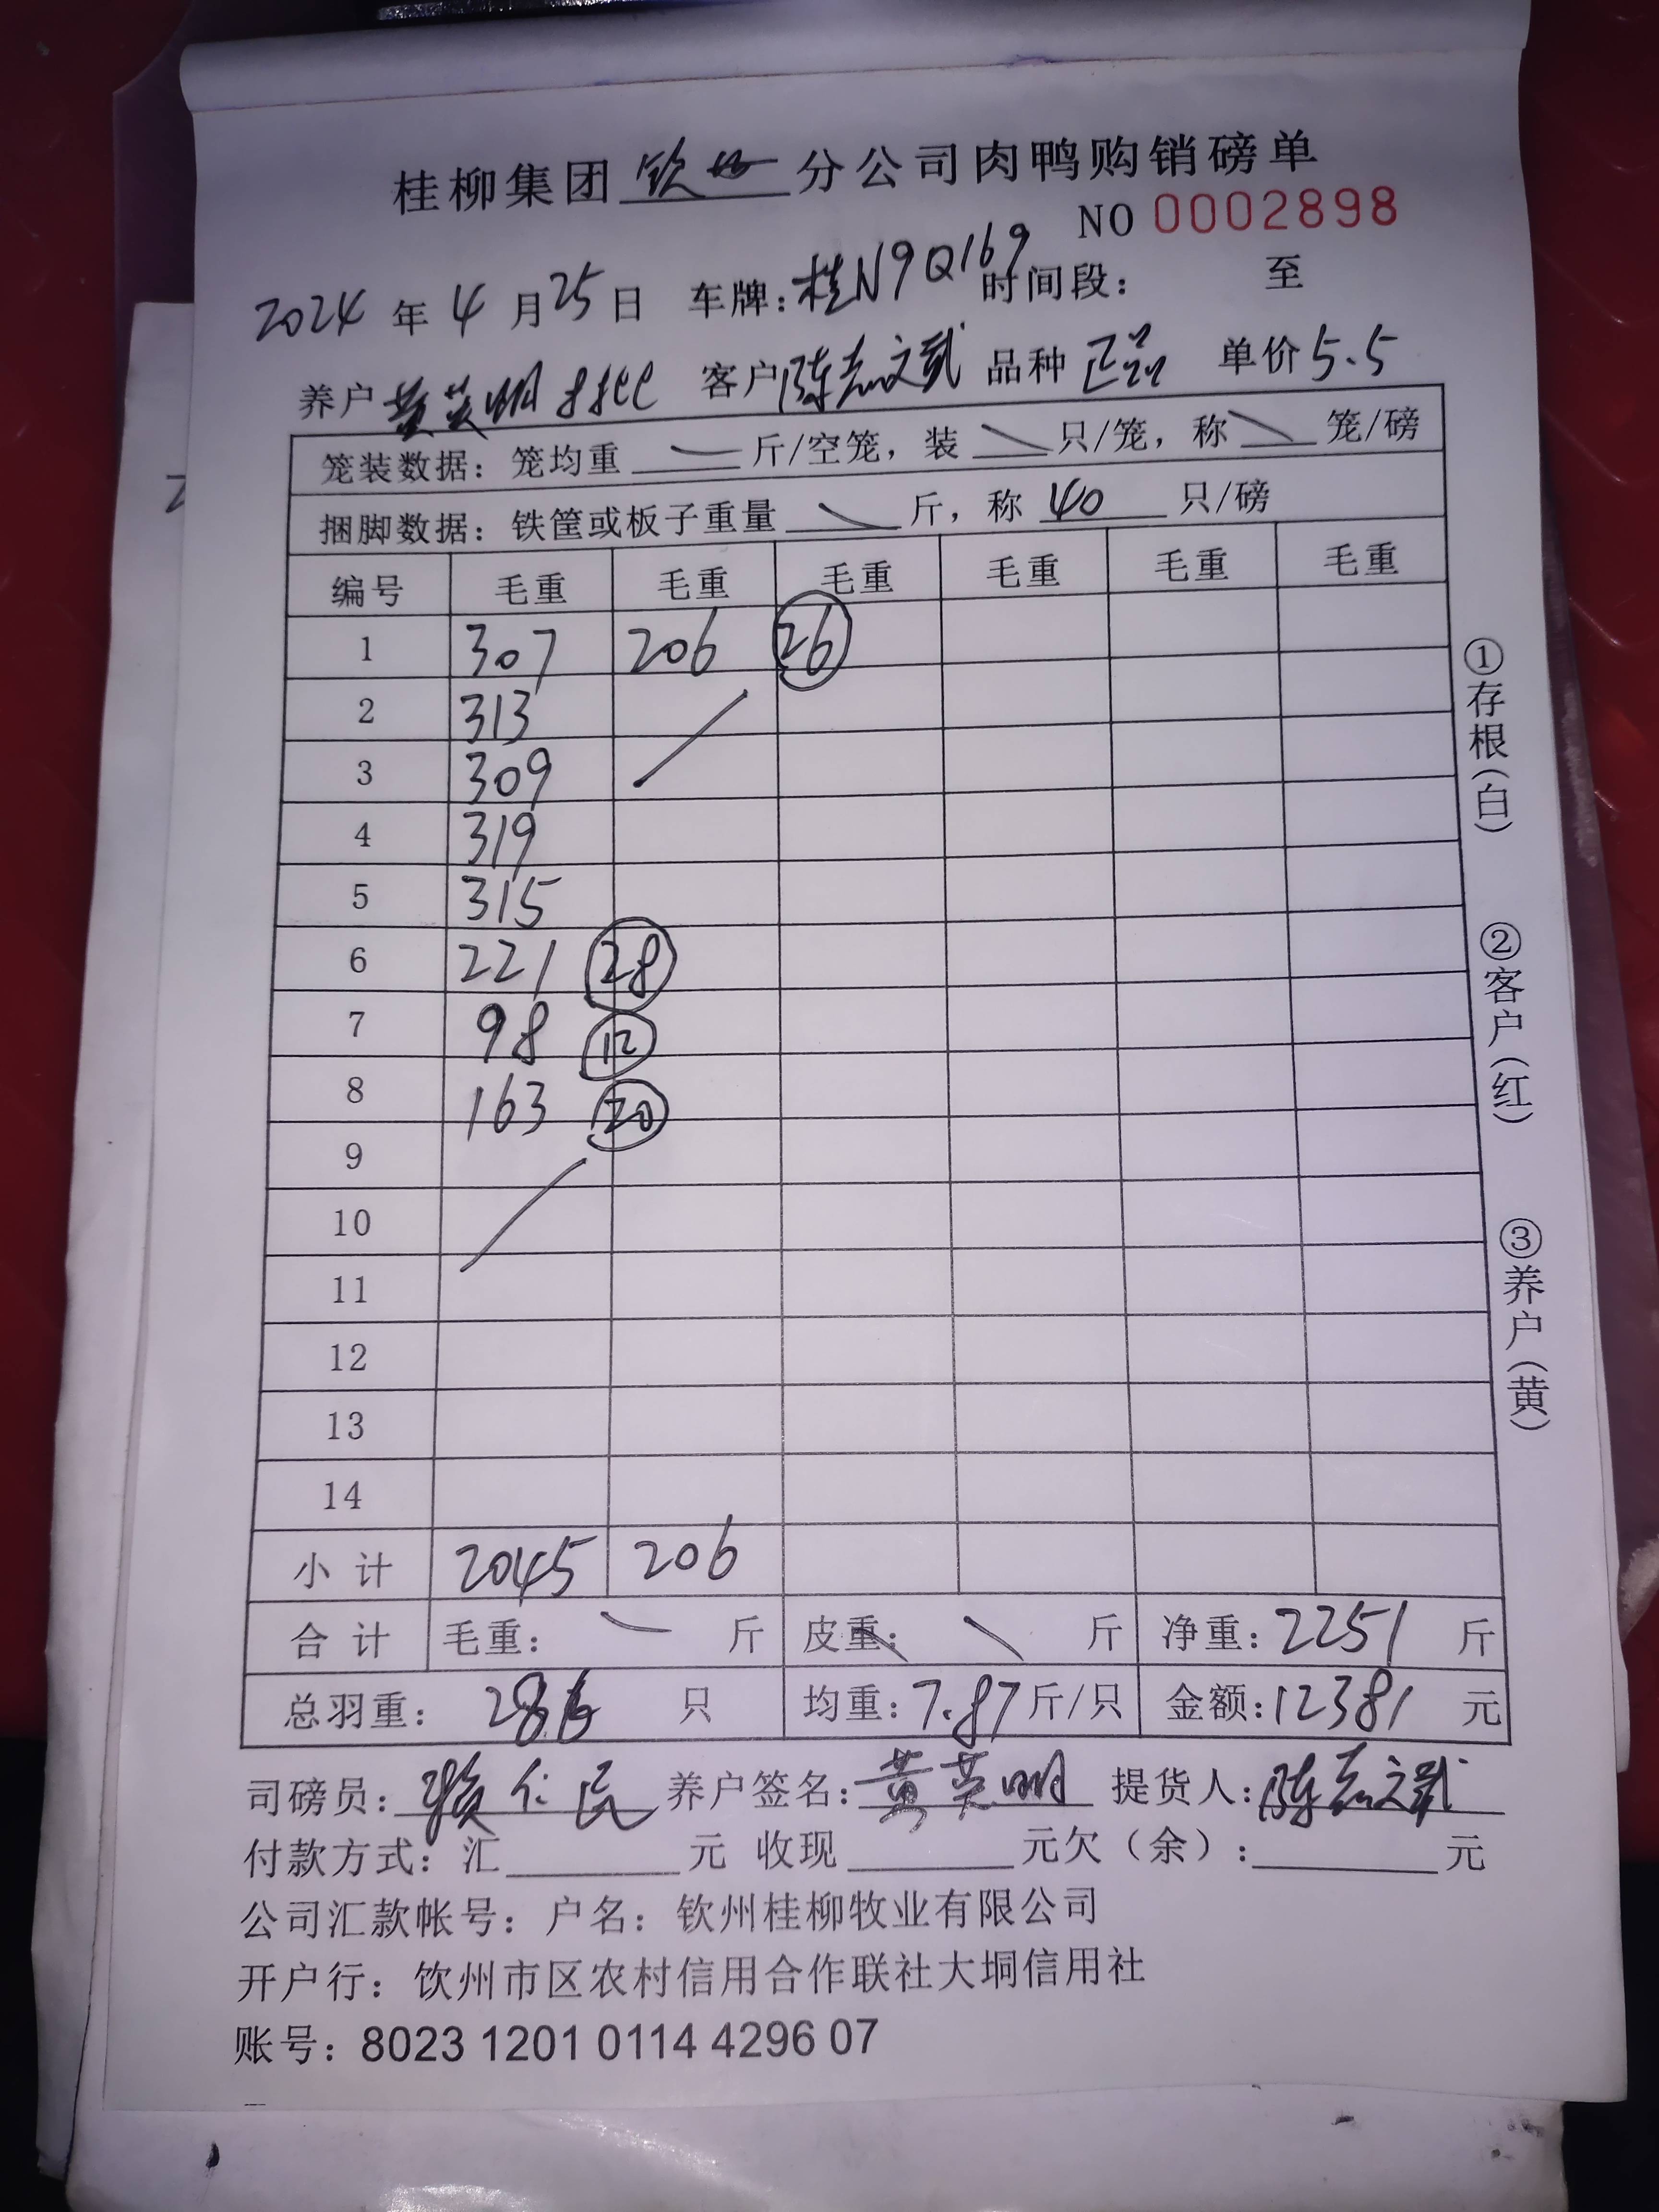 桂柳集团 钦州 分公司肉鸭购销磅单
NO 0002898
2024 年 4 月 25 日 车牌：桂N9Q169 时间段： 至
养户 黄英明 客户 陈志斌 品种 正品 单价 5.5
笼装数据：笼均重 斤/空笼，装 只/笼，称 笼/磅
捆脚数据：铁筐或板子重量 斤，称 40 只/磅
编号 毛重 毛重 毛重 毛重 毛重 毛重
1 307 206 26
2 313
3 309
4 319
5 315
6 221 28
7 98 12
8 163 20
9
10
11
12
13
14
小计 2045 206
合计 毛重： 斤 皮重： 斤 净重：2251 斤
总羽重： 286 只 均重：7.87 斤/只 金额：12381 元
司磅员：赖仁民 养户签名：黄英明 提货人：陈志斌
付款方式：汇 元 收现 元欠（余）： 元
公司汇款帐号：户名：钦州桂柳牧业有限公司
开户行：饮州市区农村信用合作联社大垌信用社
账号：8023 1201 0114 4296 07
①存根（白）
②客户（红）
③养户（黄）